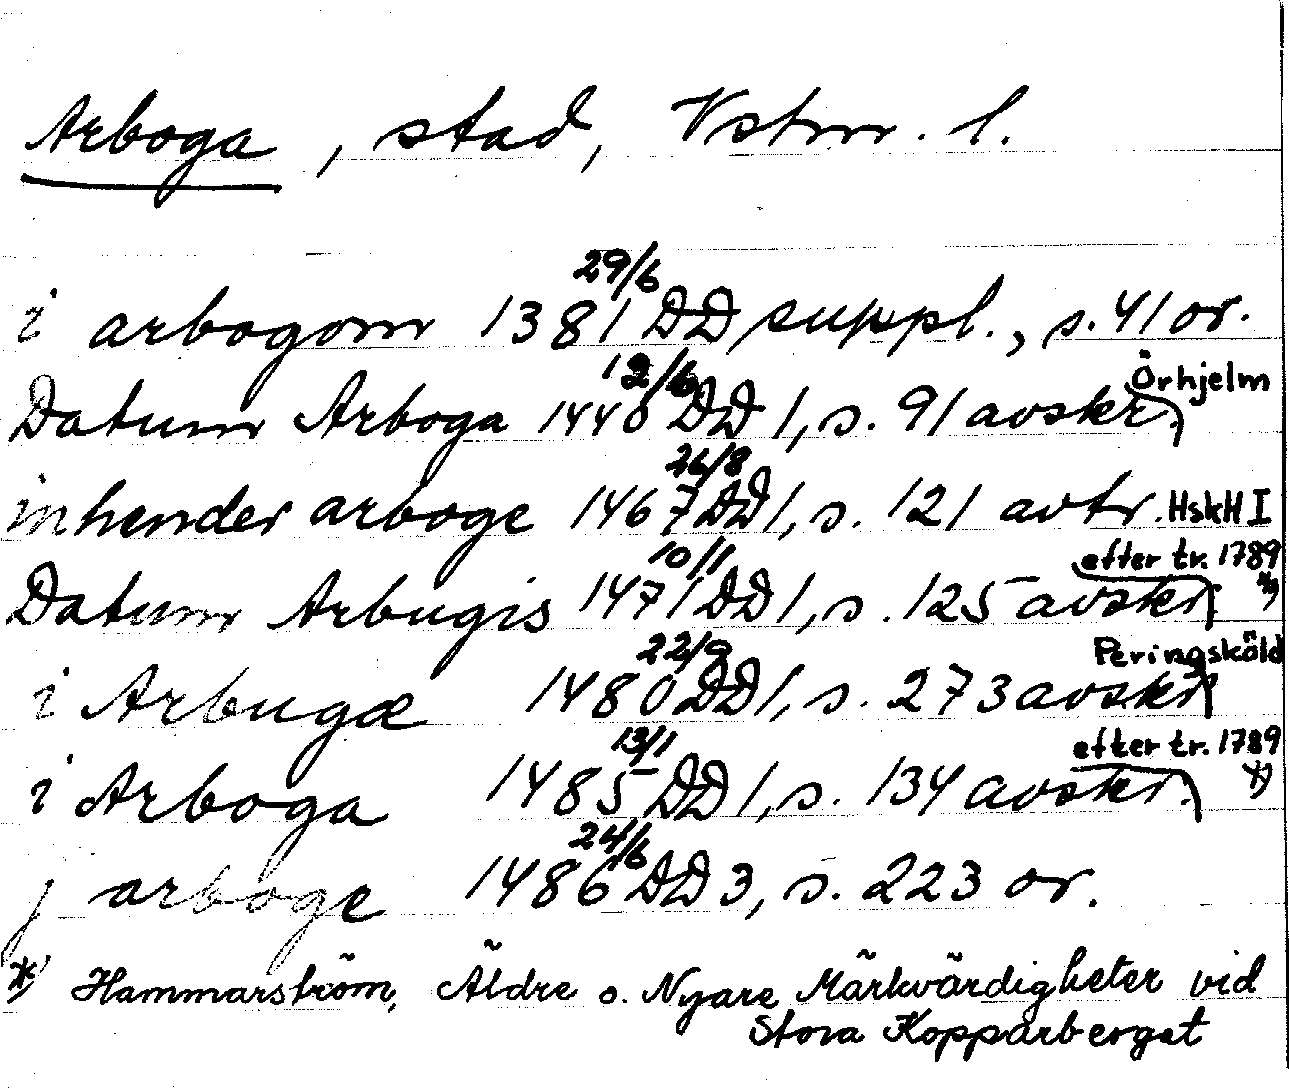 Arboga, stad, Vstm. l.
i arbogom 1381 29/6 DD suppl., s. 41 or.
Datum Arboga 1440 12/6 DD 1, s. 91 avskr. Örhjelm
inhender arboge 1467 26/8 DD 1, s. 121 avtr. HskH I
Datum Arbugis 1471 10/1 DD 1, s. 125 avskr. efter tr. 1789 *)
i Arbugæ 1480 22/9 DD 1, s. 273 avskr. Peringsköld
i Arboga 1485 13/1 DD 1, s. 134 avskr. efter tr. 1789 *)
j arboge 1486 24/6 DD 3, s. 223 or.
*) Hammarström, Äldre o. Nyare Märkvärdigheter vid
Stora Kopparberget